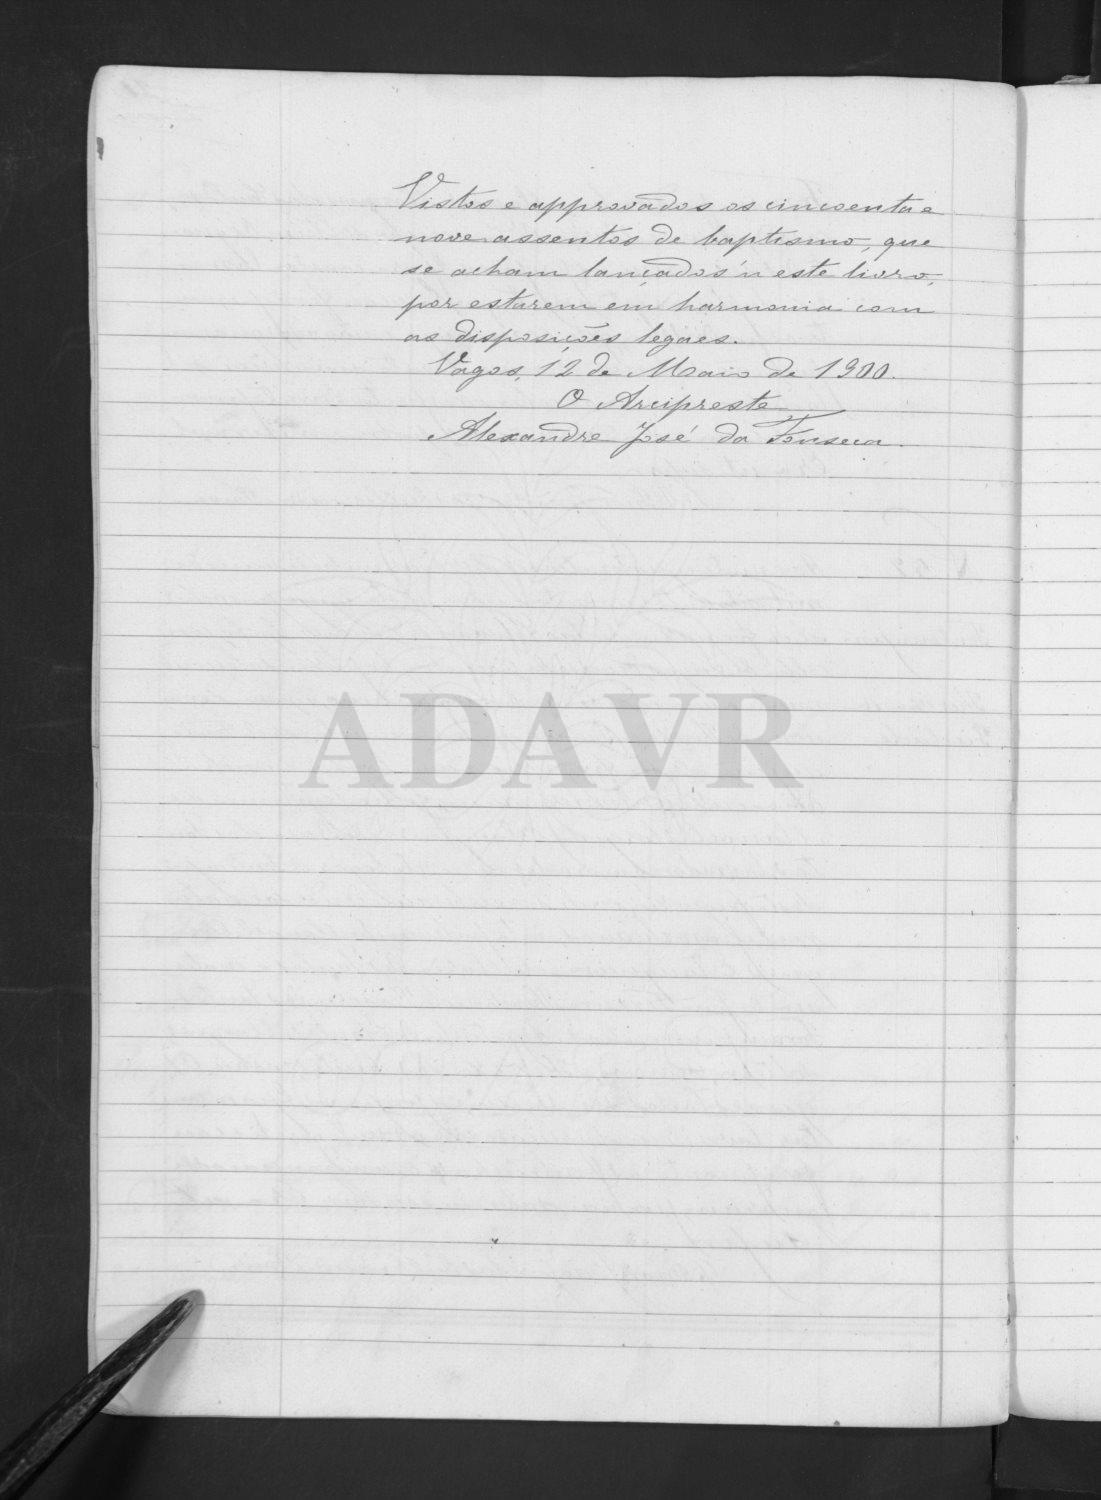 Vistos e approvados os cincoenta e
nove assentos de baptismo, que
se acham lançados n'este livro,
por estarem em harmonia com
as disposições legaes.
Vagos, 12 de Maio de 1900.
O Arcipreste
Alexandre José da Fonseca.
ADAVR